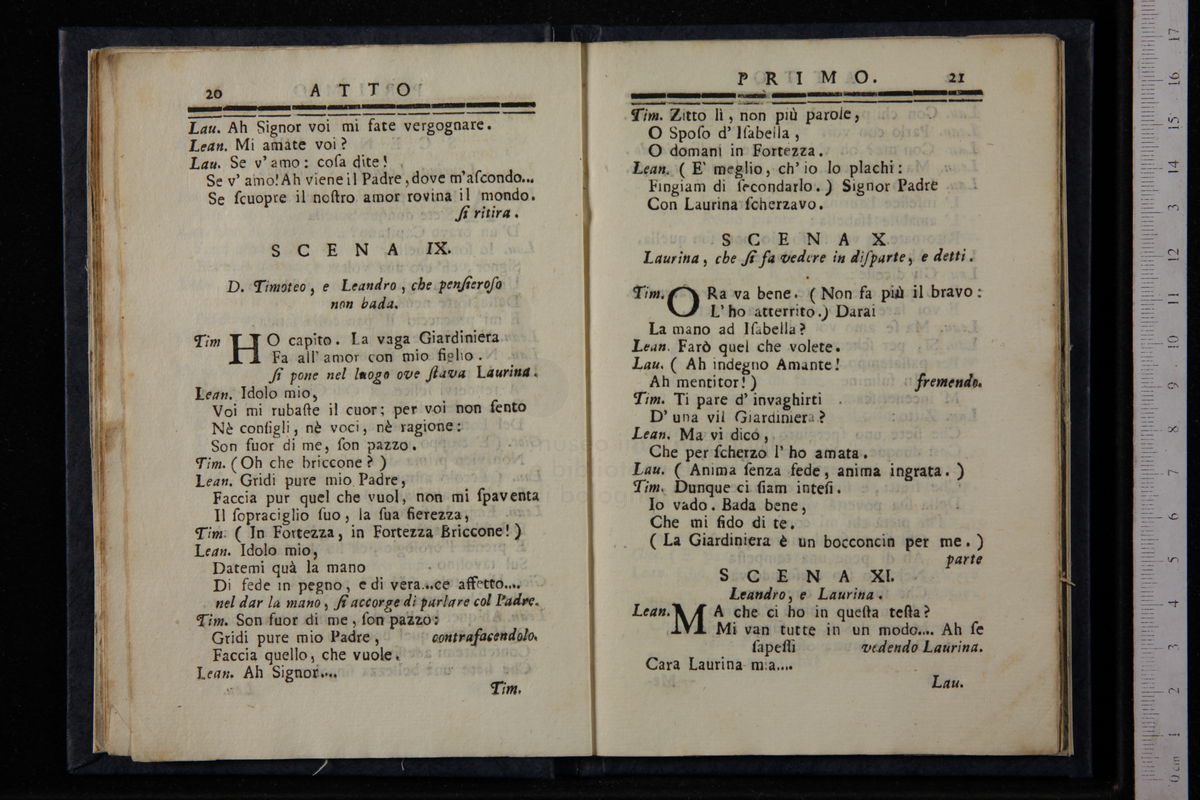 20 ATTO
Lau. Ah Signor voi mi fate vergognare.
Lean. Mi amate voi?
Lau. Se v' amo: coſa dite!
Se v' amo! Ah viene il Padre, dove m'aſcondo...
Se ſcuopre il noſtro amor rovina il mondo.
ſi ritira.
SCENA IX.
D. Timoteo, e Leandro, che penſieroſo
non bada.
Tim HO capito. La vaga Giardiniera
Fa all' amor con mio figlio.
ſi pone nel luogo ove ſtava Laurina.
Lean. Idolo mio,
Voi mi rubaſte il cuor; per voi non ſento
Nè conſigli, nè voci, nè ragione:
Son fuor di me, ſon pazzo.
Tim. (Oh che briccone?)
Lean. Gridi pure mio Padre,
Faccia pur quel che vuol, non mi ſpaventa
Il ſopraciglio ſuo, la ſua fierezza,
Tim. (In Fortezza, in Fortezza Briccone!)
Lean. Idolo mio,
Datemi quà la mano
Di fede in pegno, e di vera...ce affetto....
nel dar la mano, ſi accorge di parlare col Padre.
Tim. Son fuor di me, ſon pazzo:
Gridi pure mio Padre, contrafacendolo.
Faccia quello, che vuole.
Lean. Ah Signor....
Tim.
PRIMO. 21
Tim. Zitto lì, non più parole,
O Spoſo d' Iſabella,
O domani in Fortezza.
Lean. (E' meglio, ch' io lo plachi:
Fingiam di ſecondarlo.) Signor Padre
Con Laurina ſcherzavo.
SCENA X
Laurina, che ſi fa vedere in diſparte, e detti.
Tim. ORa va bene. (Non fa più il bravo:
L' ho atterrito.) Darai
La mano ad Iſabella?
Lean. Farò quel che volete.
Lau. (Ah indegno Amante!
Ah mentitor!) fremendo.
Tim. Ti pare d' invaghirti
D' una vil Giardiniera?
Lean. Ma vi dico,
Che per ſcherzo l' ho amata.
Lau. (Anima ſenza fede, anima ingrata.)
Tim. Dunque ci ſiam inteſi.
Io vado. Bada bene,
Che mi fido di te.
(La Giardiniera è un bocconcin per me.)
parte
SCENA XI.
Leandro, e Laurina.
Lean. MA che ci ho in queſta teſta?
Mi van tutte in un modo.... Ah ſe
ſapeſſi vedendo Laurina.
Cara Laurina mia....
Lau.